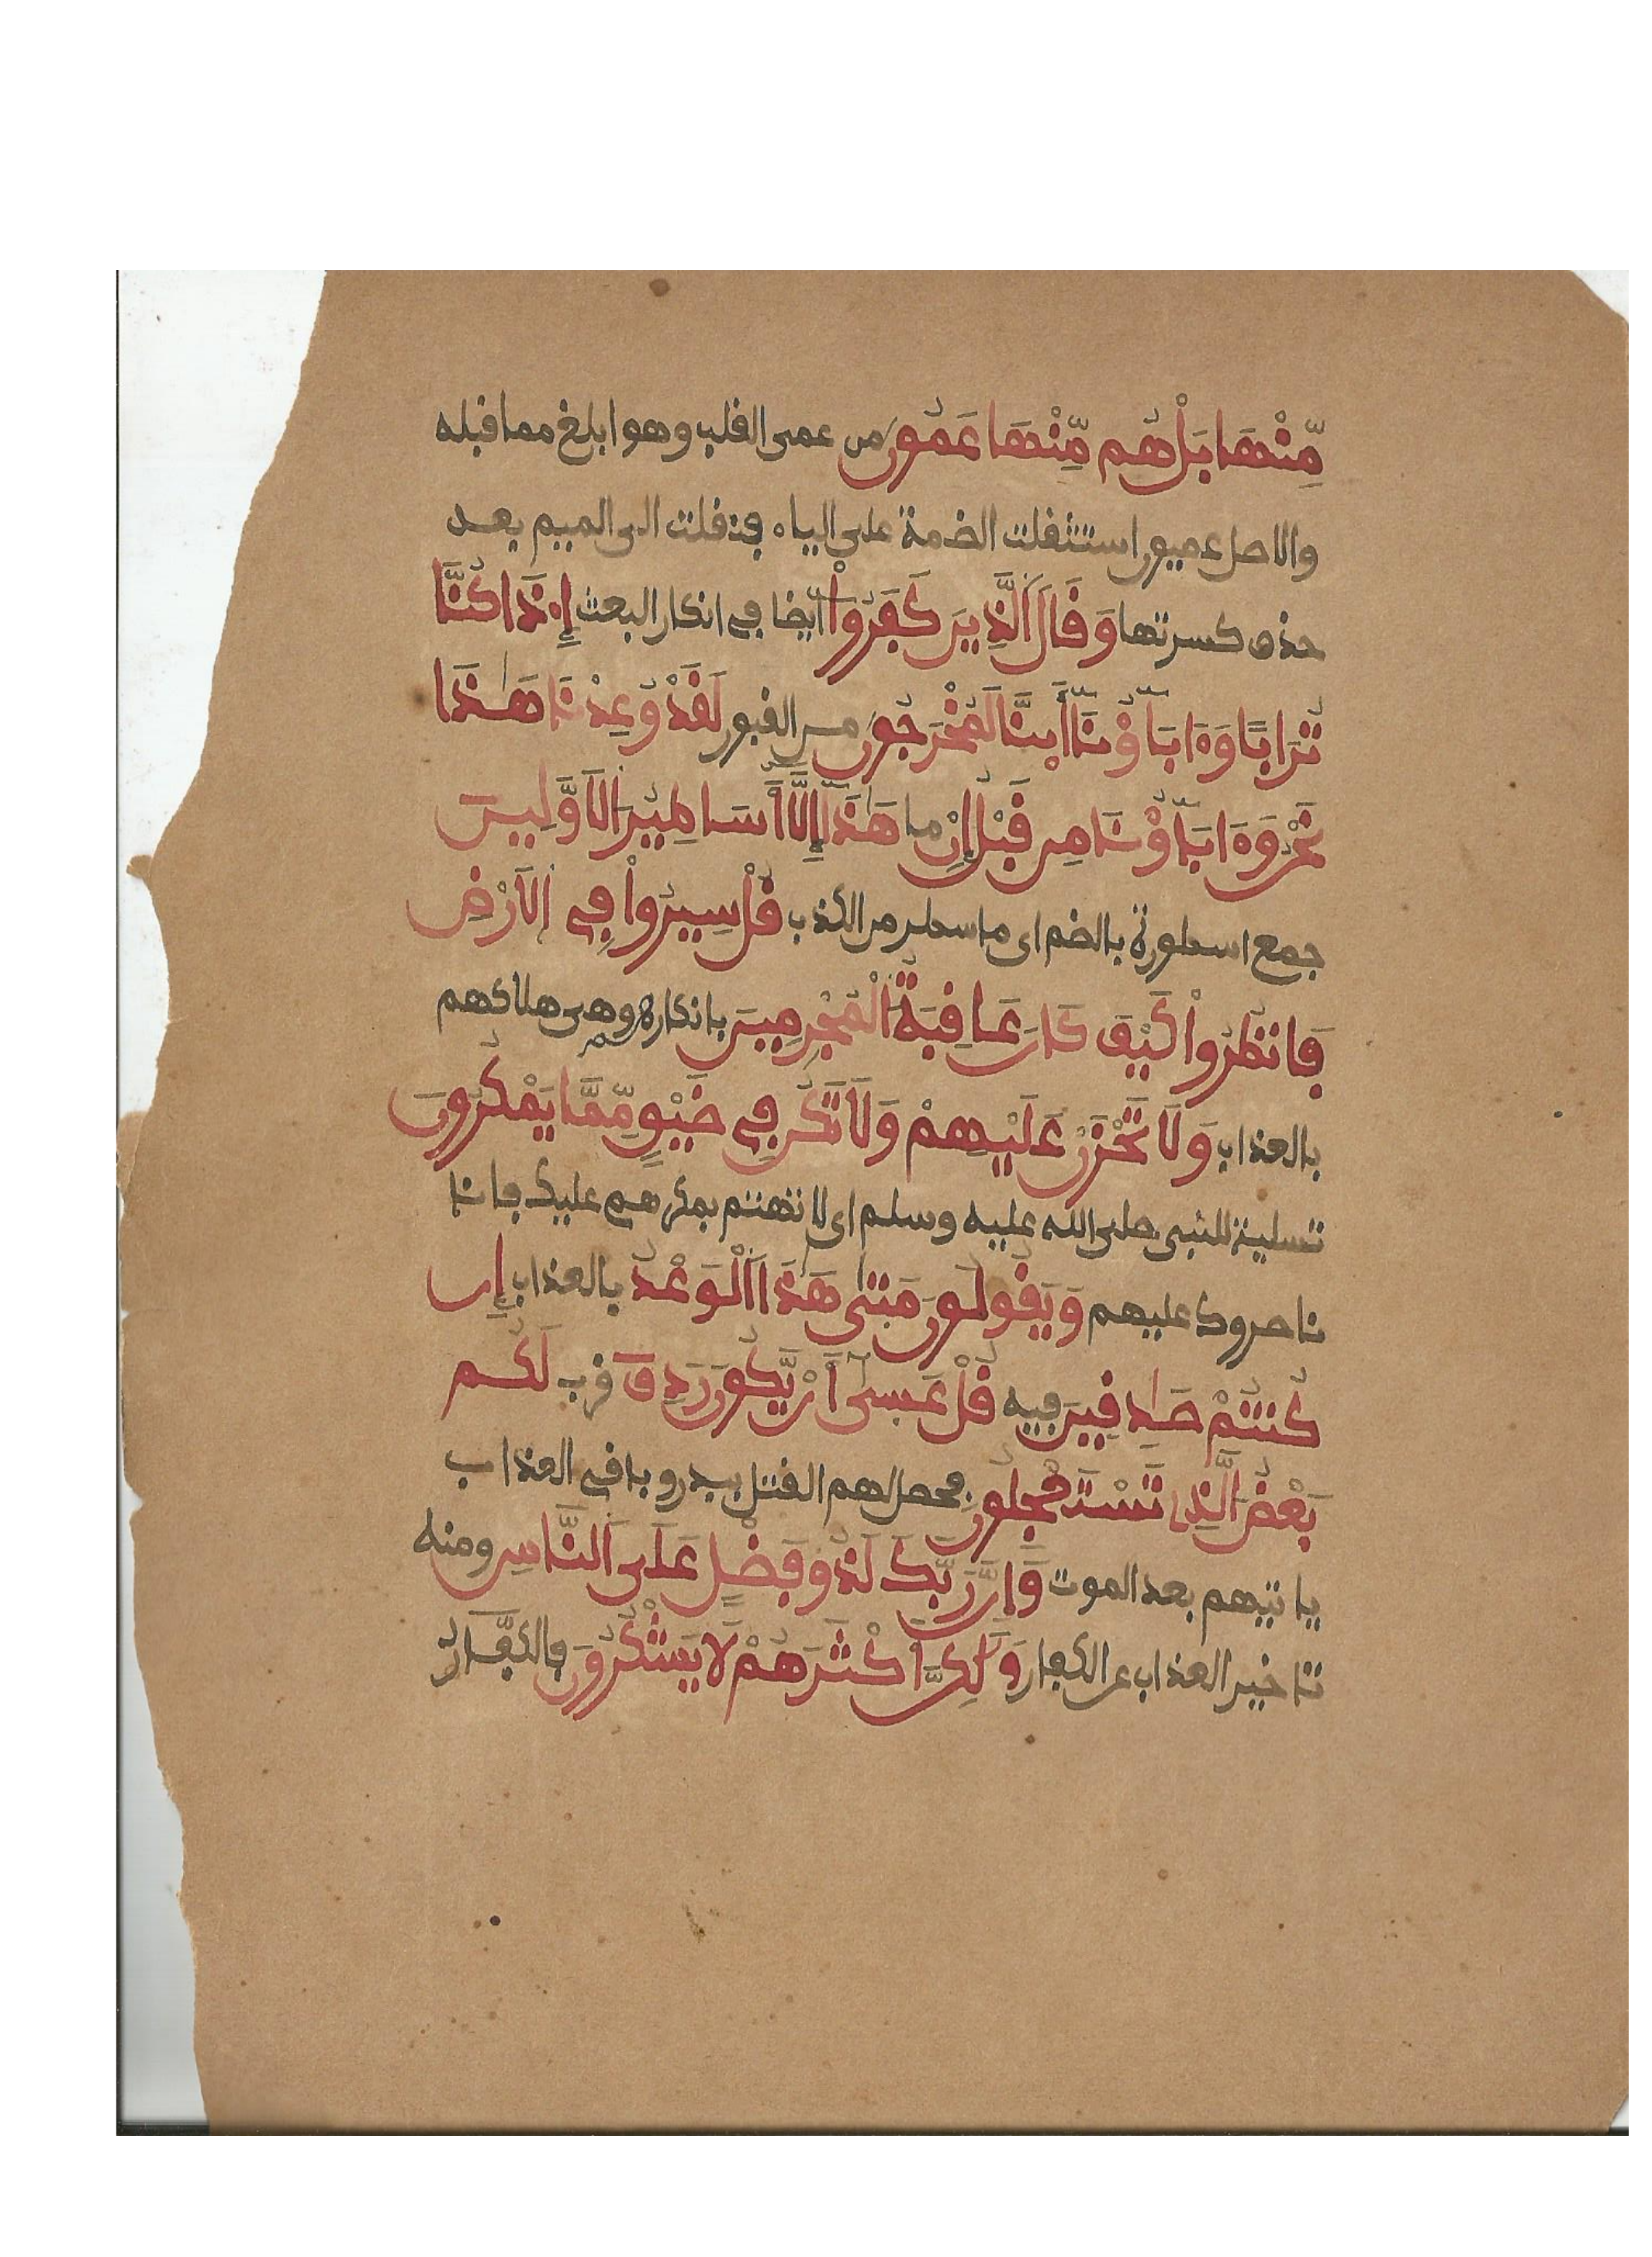 مِّنْهَا بَلْ هُم مِّنْهَا عَمُونَ من عمى القلب وهو ابلغ مما قبله
والاصل عميون استثقلت الضمة على الياء فنقلت الى الميم بعد
حذف كسرتها وَقَالَ اَلَّذِينَ كَفَرُواْ ايضا في انكار البعث إِذَا كُنَّا
تُرَابًا وَءَابَآؤُنَآ أَينَّا لَمُخْرَجُونَ من القبور لَقَدْ وُعِدْنَا هَٰذَا
نَحْنُ وَءَابَآؤُنَا مِن قَبْلُ إِنْ ما هَٰذَآ إِلَّآ أَسَٰطِيرُ الَاوَّلِينَ
جمع اسطورة بالضم اى ما سطر من الكذب قُلْ سِيرُواْ فِي الَارْضِ
فَانظُرُواْ كَيْفَ كَانَ عَٰقِبَةُ الْمُجْرِمِينَ بانكاره وهى هلاكهم
بالعذاب وَلَا تَحْزَنْ عَلَيْهِمْ وَلَا تَكُن فِي ضَيْقٍ مِّمَّا يَمْكُرُونَ
تسلية للنبى صلى الله عليه وسلم اى لا تهتم بمكرهم عليك فانا
ناصروك عليهم وَيَقُولُونَ مَتَىٰ هَٰذَا اَلْوَعْدُ بالعذاب إِن
كُنتُمْ صَٰدِقِينَ فيه قُلْ عَسَىٰٓ أَنْ يَّكُونَ رَدِفَ قرب لَكُم
بَعْضُ الَّذِى تَسْتَعْجِلُونَ فحصل لهم القتل ببدر وباقى العذاب
ياتيهم بعد الموت وَإِنَّ رَبَّكَ لَذُو فَضْلٍ عَلَى اَلنَّاسِ ومنه
تاخير العذاب عن الكفار وَلَٰكِنَّ أَكْثَرَهُمْ لَا يَشْكُرُونَ فالكفار